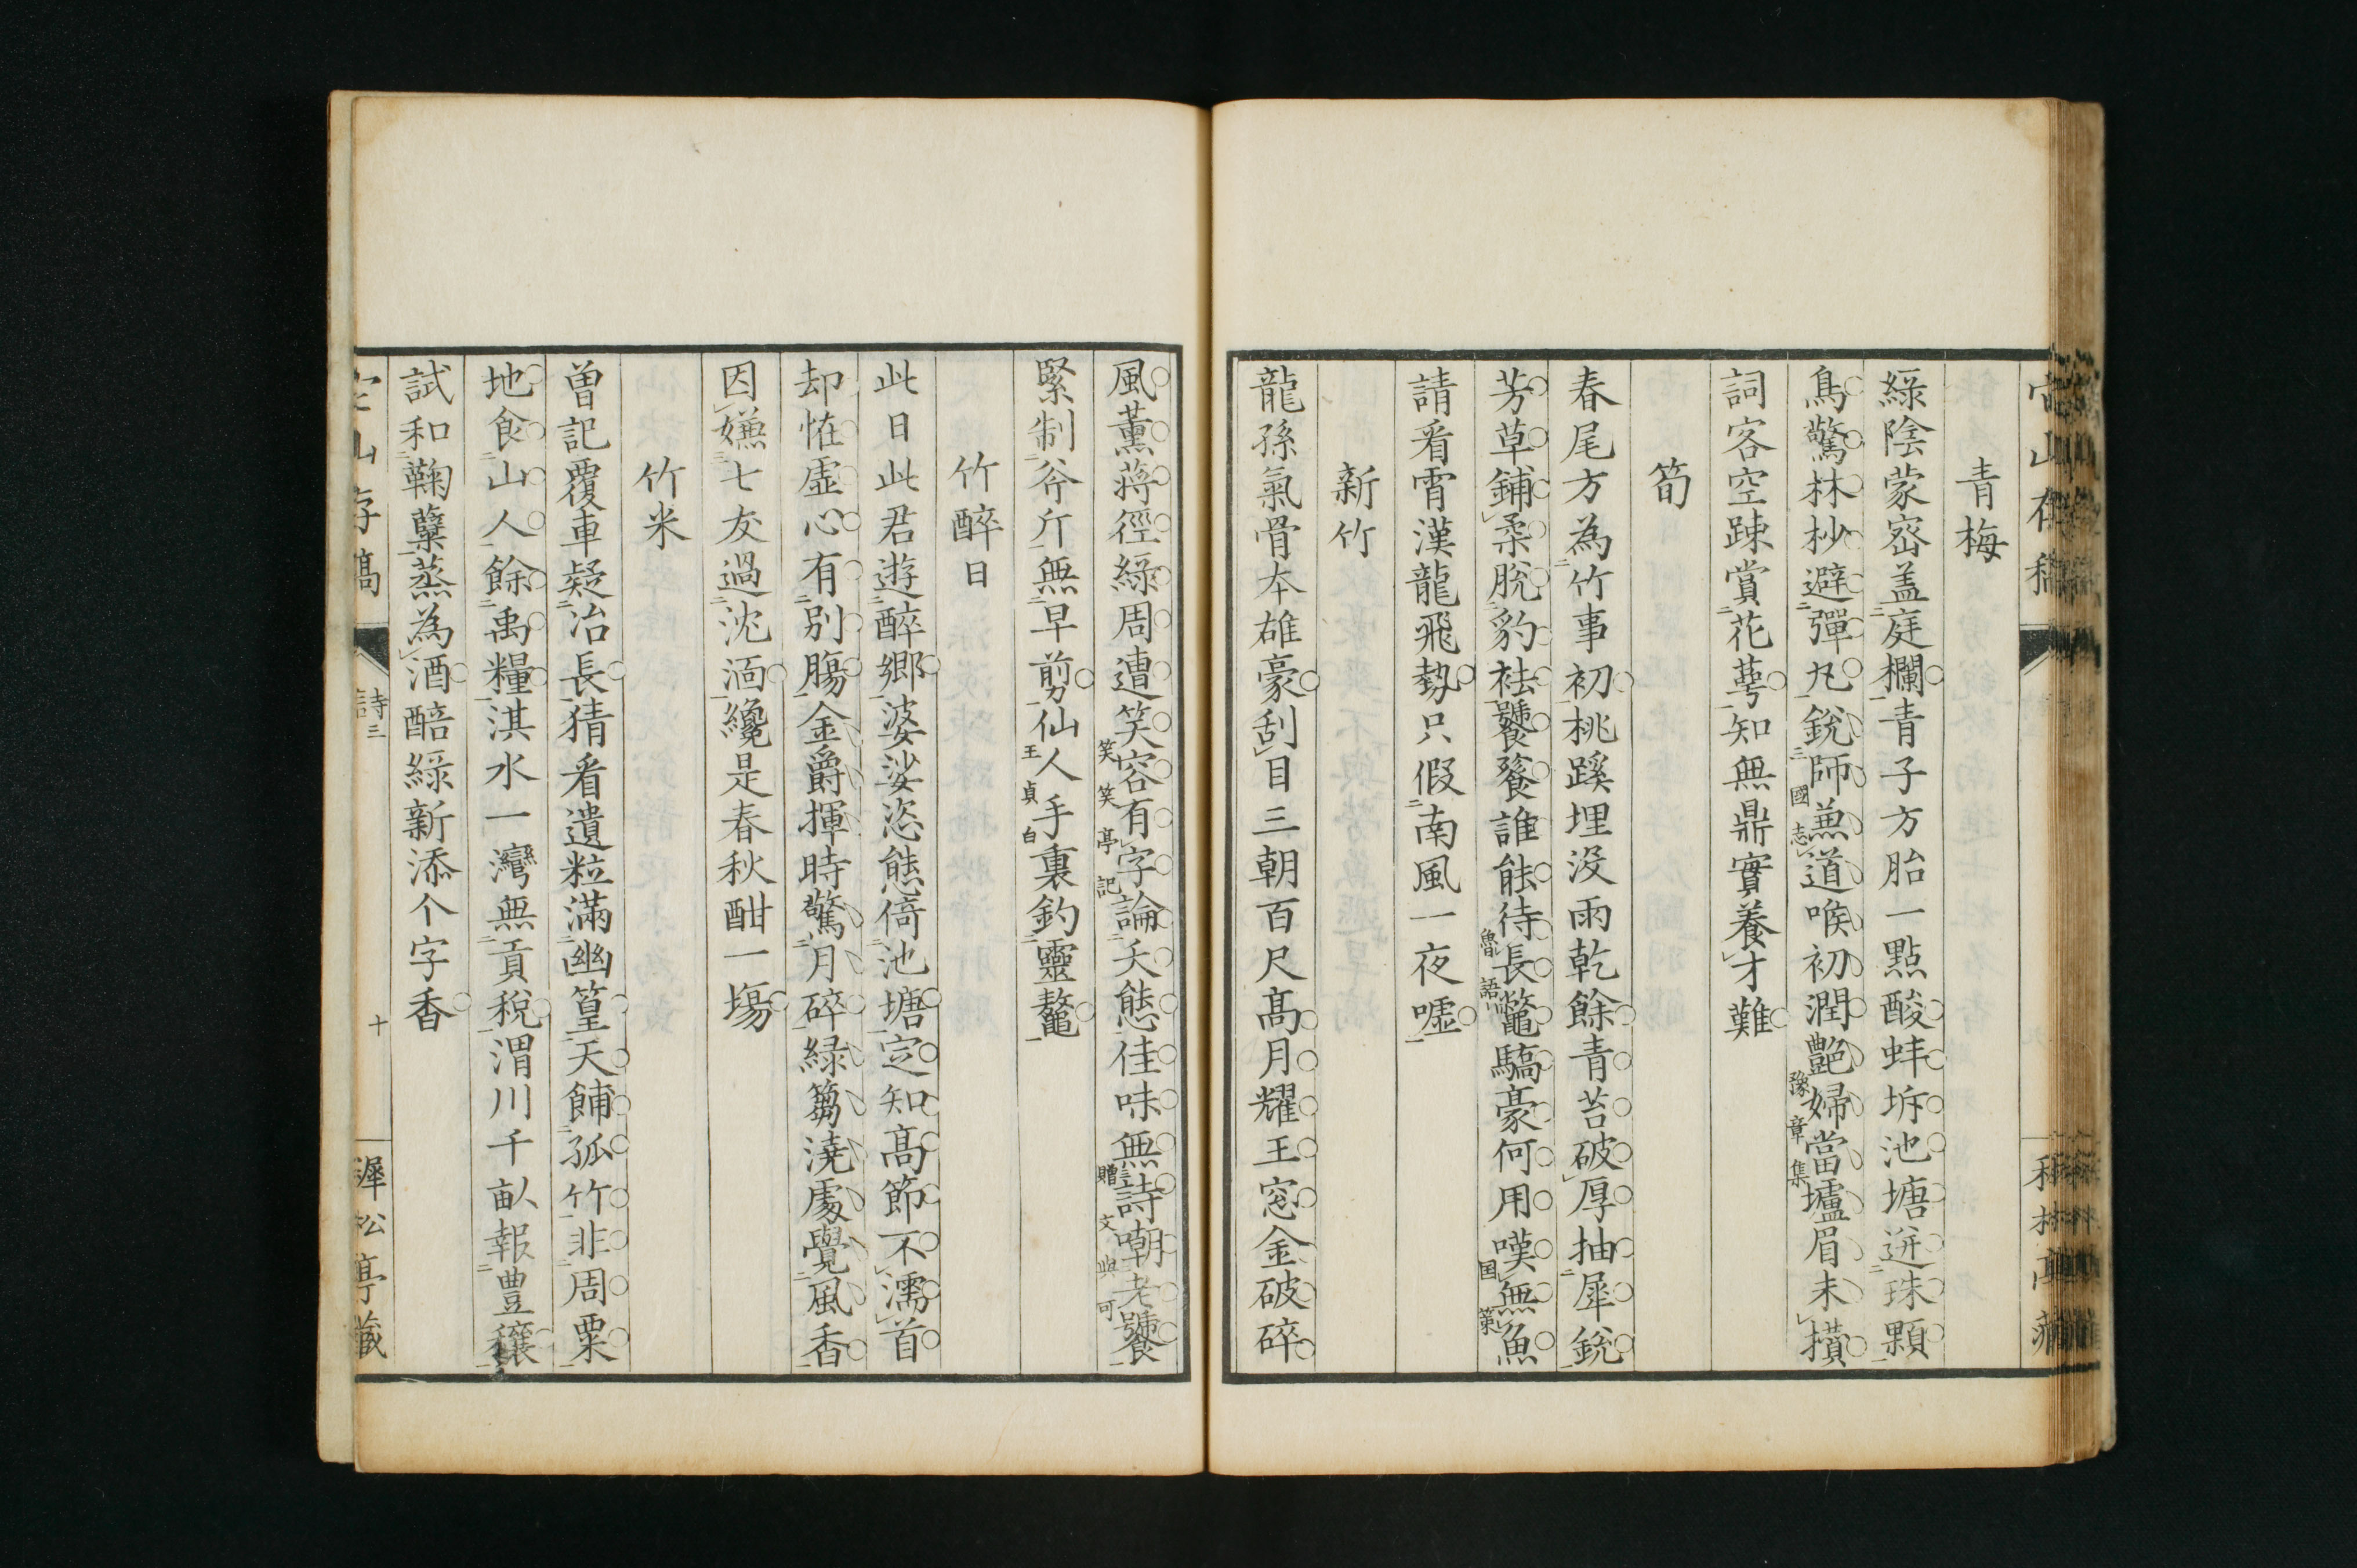 青梅
綠陰蒙宻盖庭欄青子方胎一點酸蚌坼池塘迸珠顆
鳥驚林杪避彈丸銳師無道喉初潤艷婦當壚眉未攅
國志
豫章集
詞客空踈賞花萼知無鼎實養才難
筍
春尾方為竹事初桃蹊埋没雨乾餘青苔破厚抽犀銳
芳草鋪柔脫豹袪饕餮誰能待長鼈驕豪何用嘆無魚
魯語
国策
請看霄漢龍飛勢只假南風一夜嘘
新竹
龍孫氣骨本雄豪刮目三朝百尺髙月耀王窓金破碎
風薫蒋徑綠周遭笑容有字論夭態佳味無詩嘲老饕
笑笑亭記
贈文與可
緊制斧斤無早剪仙人手裏釣靈鼇
王貞白
竹醉日
此日此君遊醉鄉婆娑恣態倚池塘定知髙節不濡首
却恠虛心有別膓金爵揮時驚月碎緑篘澆處覺風香
因嫌七友過沈湎纔是春秋酣一塲
竹米
曽記覆車疑冶長猜看遺粒滿幽篁天餔孤竹非周粟
地食山人餘禹糧淇水一灣無貢稅渭川千畝報豊穰
試和鞠糵蒸為酒醅綠新添个字香
詩三
十